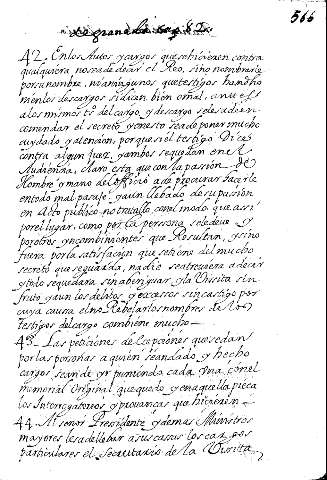 566
42. En los Autos y cargos que se hicieren contra
qualquiera no se a de decir el Reo, sino nombrarle
por su nombre, ni que testigos han dho
ni en los descargos si dixen bien o mal, a nues
a los mismos ts del cargo, y descargo se les a de en
comendar el secreto, y en esto se a de poner mucho
cuydado y atencion, porque si el testigo Dice
contra algun Juez, y ambos se quedan en el
Audiencia, claro esta que con la passion de
Hombre y mano del officio a de procurar hacerle
en todo mal pasaje. y aun llebado de su passion
en acto publico no trtallo con el modo que assi
por el lugar, como por la persona se le deve y
por otros ynconbinientes que Resultan, y si no
fuera por la satisfacion que se tiene del mucho
secreto que se guarda, nadie se atreviera a decir
y todo se quedara sin aberiguar y la Visita sin
fruto y aun los delitos y excessos sin castigo por
cuya causa el no Rebelar los nombres de los
testigos del cargo combiene mucho
43. Las peticiones de Capciones que se dan
por las personas a quien se an dado, y hecho
cargos se an de yr puniendo cada una con el
memorial Original que quedo y en aquella pieca
los Interrogatorios, y provanças que hicieren
44. Al señor Presidente y demas Ministros
mayores les a de llebar a sus casas los cargos
particulares el Secretario de la Visita